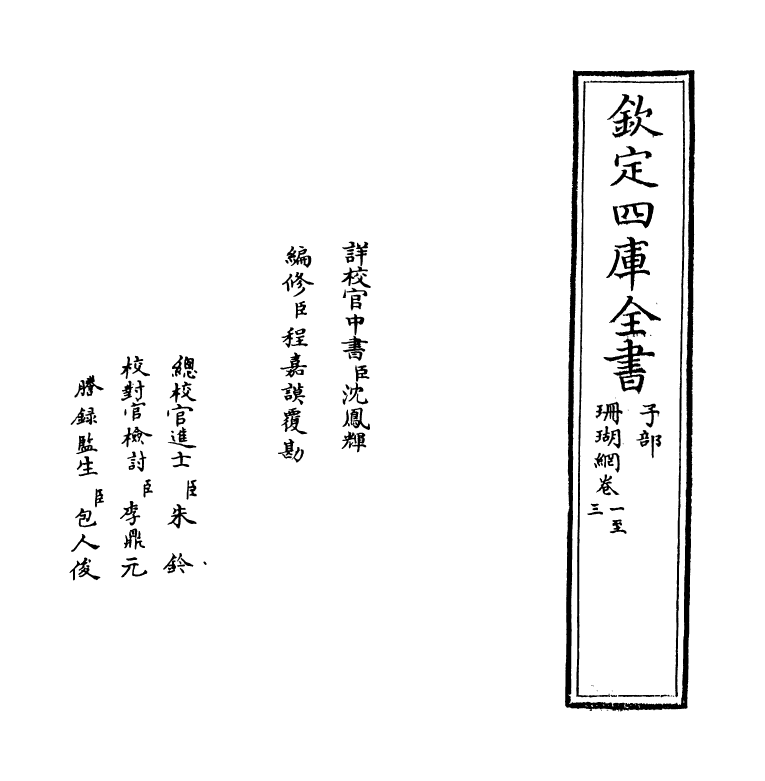 欽定四庫全書
子部
珊瑚網卷一至三
詳校官中書臣沈鳳輝
編修臣程嘉謨覆勘
總校官進士臣朱鈐
校對官檢討臣李鼎元
謄錄監生臣包人俊